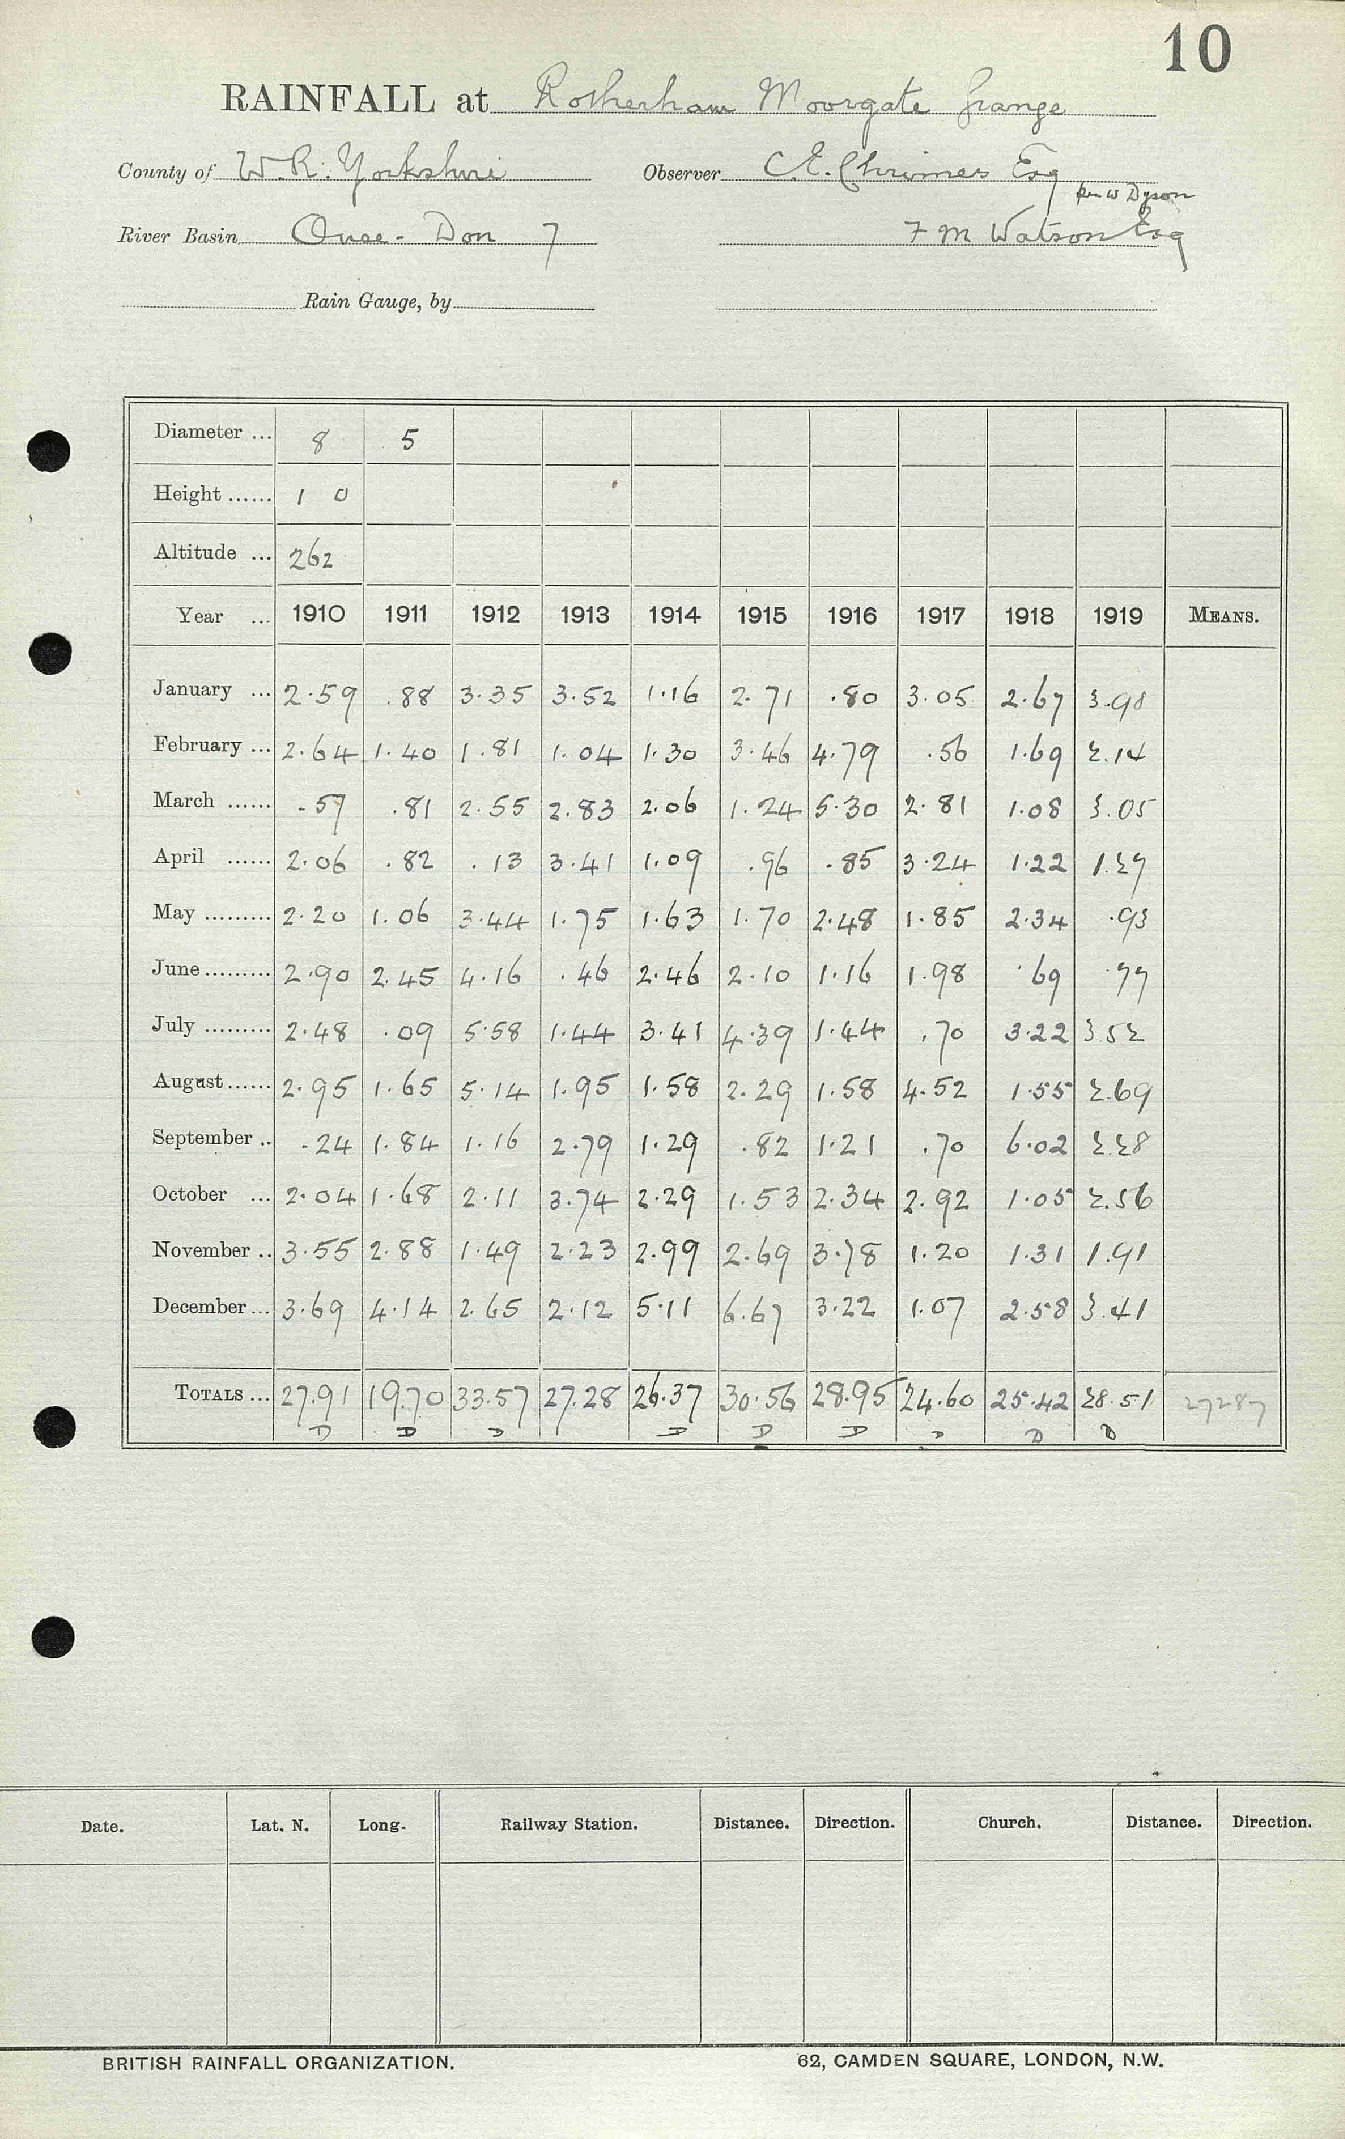 10
RAINFALL at Rotherham Moorgate Grange
County of W.R. Yorkshire Observer C.E. Chrimes Esq
per W Dyson
River Basin Ouse - Don 7 F M Watson Esq
Rain Gauge, by
Diameter ... 8 5
Height ...... 1 0
Altitude ... 262
Year ... 1910 1911 1912 1913 1914 1915 1916 1917 1918 1919 MEANS.
January ... 2.59 .88 3.35 3.52 1.16 2.71 .80 3.05 2.67 3.98
February ... 2.64 1.40 1.81 1.04 1.30 3.46 4.79 .56 1.69 2.14
March ...... .57 .81 2.55 2.83 2.06 1.24 5.30 2.81 1.08 3.05
April ...... 2.06 .82 .13 3.41 1.09 .96 .85 3.24 1.22 1.27
May ......... 2.20 1.06 3.44 1.75 1.63 1.70 2.48 1.85 2.34 .93
June ......... 2.90 2.45 4.16 .46 2.46 2.10 1.16 1.98 .69 .77
July ......... 2.48 .09 5.58 1.44 3.41 4.39 1.44 .70 3.22 3.52
August ...... 2.95 1.65 5.14 1.95 1.58 2.29 1.58 4.52 1.55 2.69
September .. .24 1.84 1.16 2.79 1.29 .82 1.21 .70 6.02 2.28
October ... 2.04 1.68 2.11 3.74 2.29 1.53 2.34 2.92 1.05 2.56
November .. 3.55 2.88 1.49 2.23 2.99 2.69 3.78 1.20 1.31 1.91
December ... 3.69 4.14 2.65 2.12 5.11 6.67 3.22 1.07 2.58 3.41
TOTALS ... 27.91 19.70 33.57 27.28 26.37 30.56 28.95 24.60 25.42 28.51 27287
D D D D D D D D D
Date. Lat. N. Long. Railway Station. Distance. Direction. Church. Distance. Direction.
BRITISH RAINFALL ORGANIZATION. 62, CAMDEN SQUARE, LONDON, N.W.